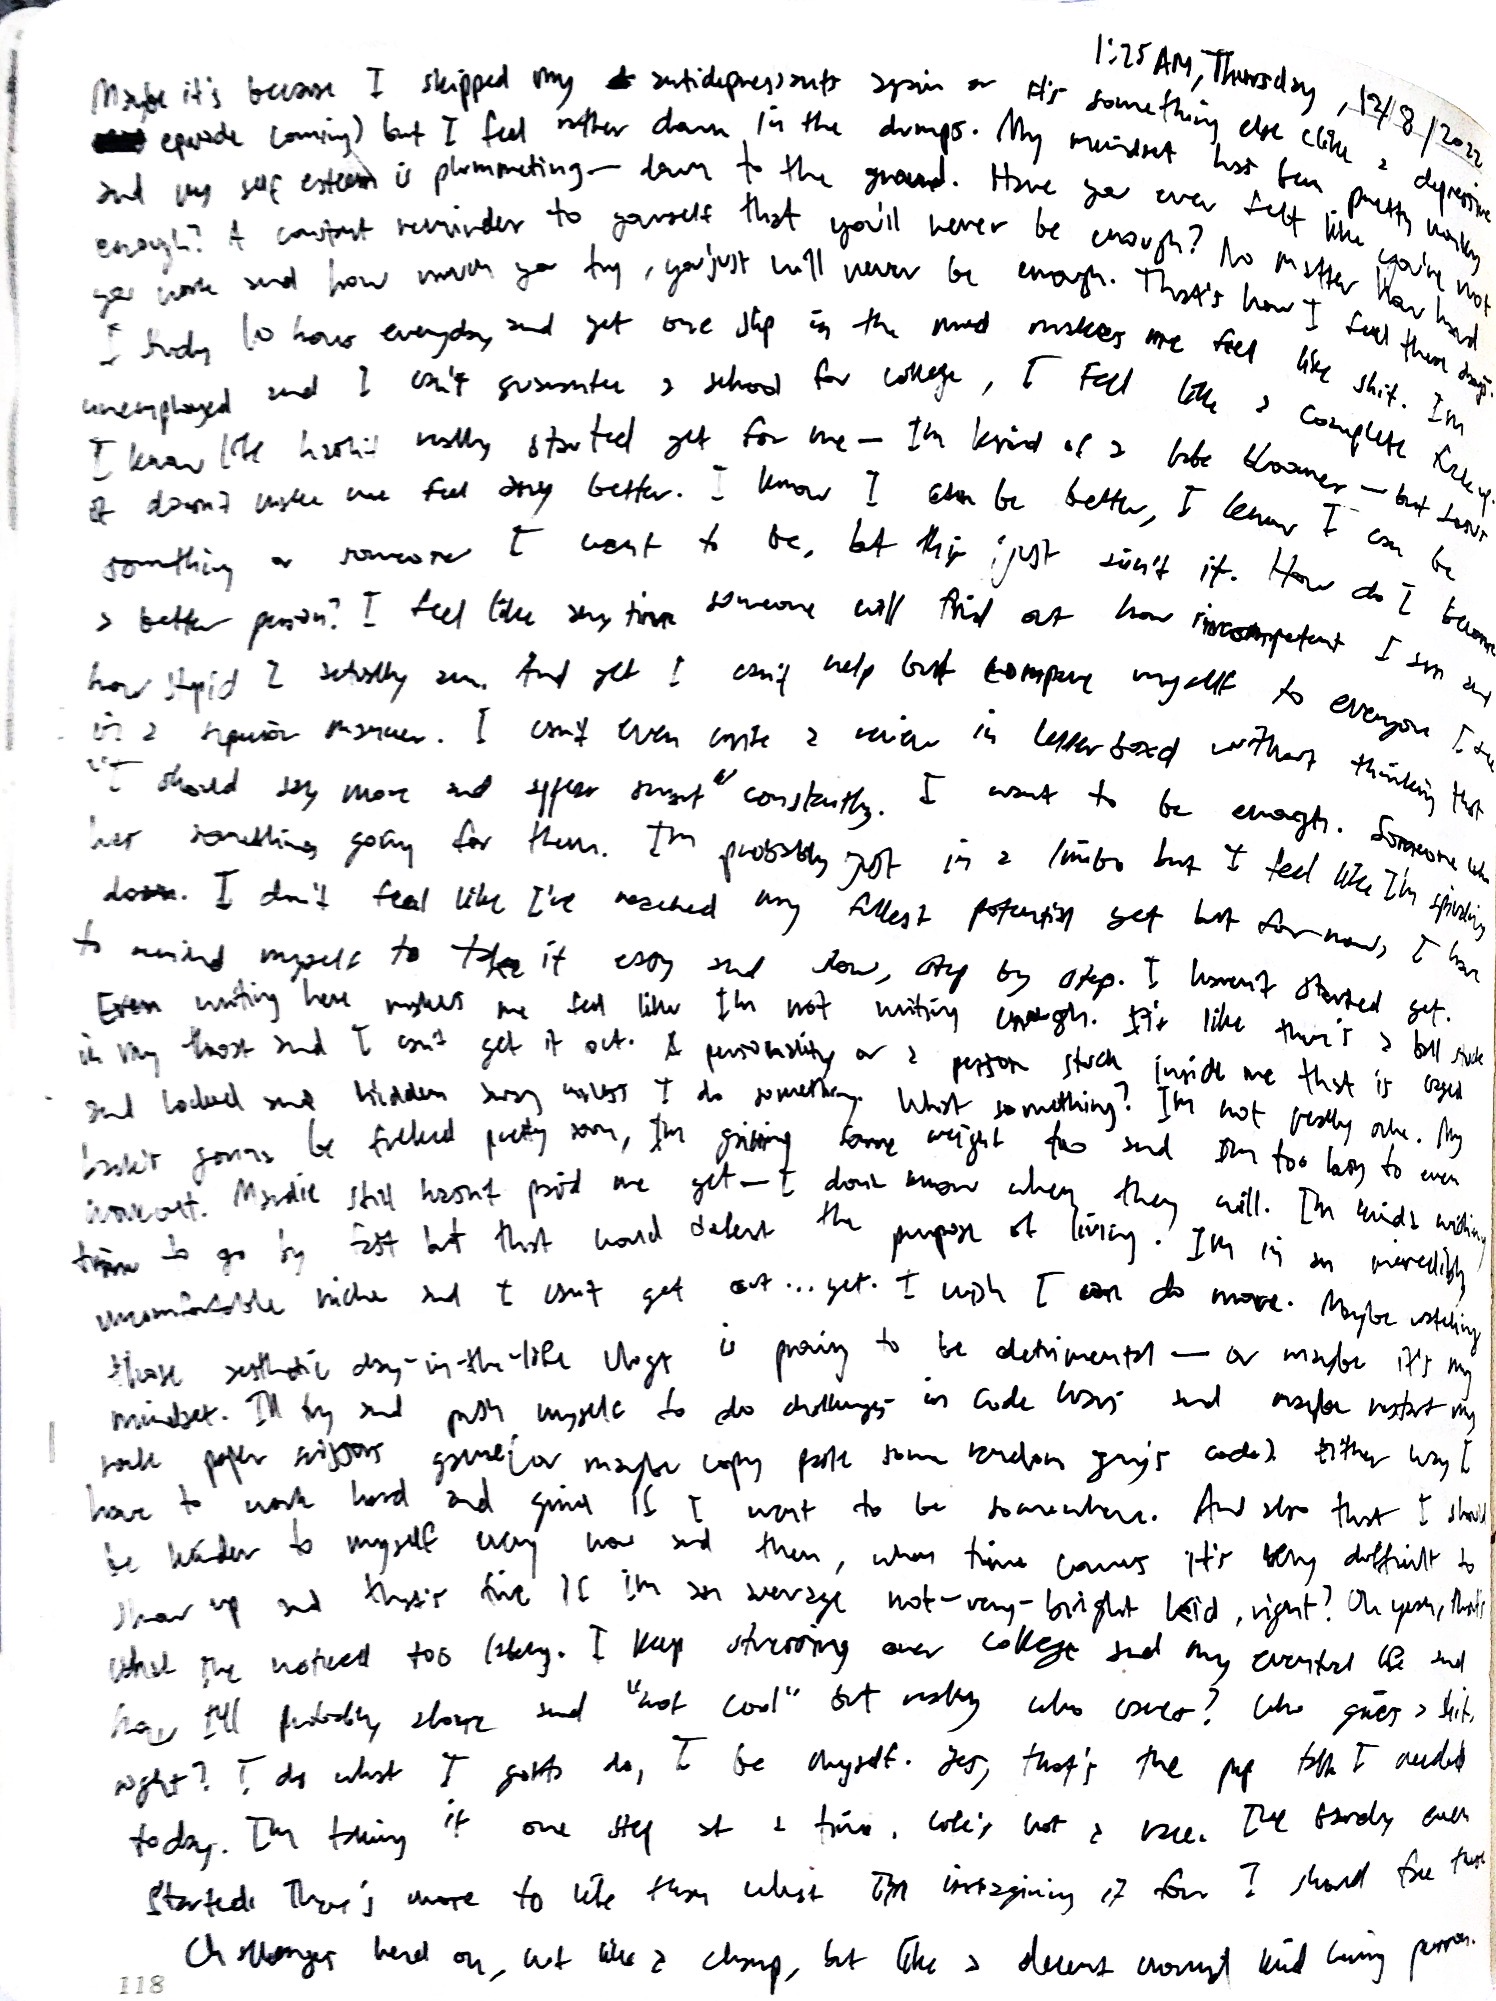 1:25 AM, Thursday, 12/8/2022
Maybe it's because I skipped my antidepressants again or it's something else (like a depressive
episode coming) but I feel rather down in the dumps. My mindset has been pretty
and my self esteem is plummeting — down to the ground. Have you ever felt like you're not
enough? A constant reminder to yourself that you'll never be enough? No matter how hard
you work and how much you try, you just will never be enough. That's how I feel these days.
I study 10 hours everyday and yet one slip in the mud makes me feel like shit. I'm
unemployed and I can't guarantee a school for college, I feel like a complete fuck up.
I know life hasn't really started yet for me — I'm kind of a late bloomer — but
it doesn't make me feel any better. I know I can be better, I know I can be
something or someone I want to be, but this just ain't it. How do I become
a better person? I feel like any time someone will find out how incompetent I am and
how stupid I actually am. And yet I can't help but compare myself to everyone I see
in a superior manner. I can't even write a review in letterboxd without thinking that
"I should say more and appear smart" constantly. I want to be enough. Someone who
has something going for them. I'm probably just in a limbo but I feel like I'm spiraling
down. I don't feel like I've reached my fullest potential yet but for now, I have
to remind myself to take it easy and slow, step by step. I haven't started yet.
Even writing here makes me feel like I'm not writing enough. It's like there's a ball stuck
in my throat and I can't get it out. A personality or a person stuck inside me that is caged
and locked and hidden away unless I do something. What something? I'm not really sure. My
gonna be fucked pretty soon, I'm gaining some weight too and I'm too lazy to even
workout. still hasn't paid me yet — I don't know when they will. I'm kinda wishing
time to go by fast but that would defeat the purpose of living. I'm in an incredibly
uncomfortable niche and I can't get out... yet. I wish I can do more. Maybe watching
those aesthetic day-in-the-life vlogs is proving to be detrimental — or maybe it's my
mindset. I'll try and push myself to do challenges in Code Wars and maybe restart my
rock paper scissors game (or maybe copy paste some random guy's code). Either way I
have to work hard and grind if I want to be somewhere. And also that I should
be kinder to myself every now and then, when time comes it's very difficult to
show up and that's fine if I'm an average not-very-bright kid, right? Oh yeah, that's
what I've noticed too lately. I keep stressing over college and my eventual life and
how I'll probably and "not cool" but really who cares? Who gives a shit,
right? I do what I gotta do, I be myself. Yes, that's the pep talk I needed
today. I'm taking it one step at a time. Life's not a race. I've barely even
started. There's more to life than what I'm imagining it for. I should face these
challenges head on, not like a champ, but like a decent enough kind living person.
118